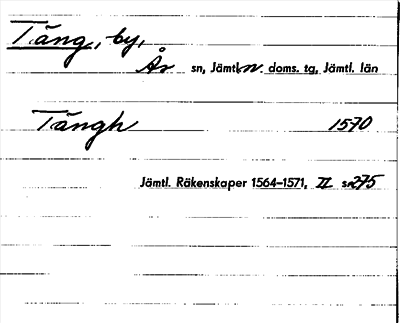 Täng, by,
Ås sn, Jämtl. n. doms. tg, Jämtl. län
Tängh 1570
Jämtl. Räkenskaper 1564–1571, II s. 275